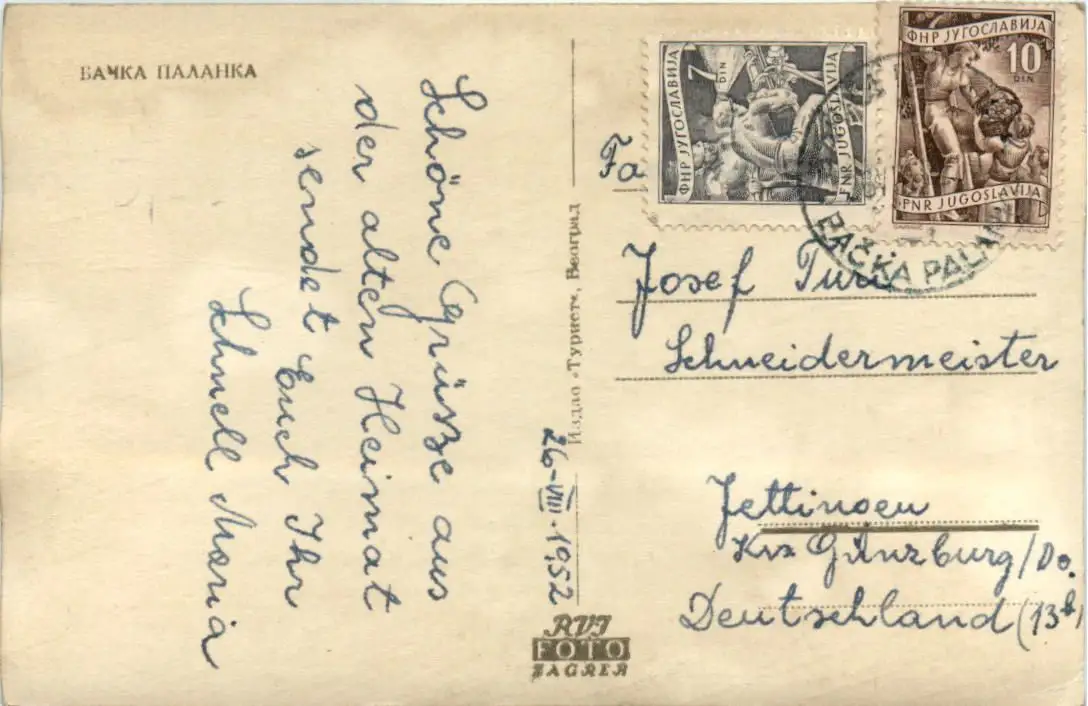 БАЧКА ПАЛАНКА
Schöne Grüsze aus
der alten Heimat
sendet Euch Ihr
Schnell Maria
26-VIII-1952
Издао „Туристе, Београд
RVI
FOTO
ZAGREB
ФНР ЈУГОСЛАВИЈА
7
DIN
FNR JUGOSLAVIJA
ФНР ЈУГОСЛАВИЈА
10
DIN
FNR JUGOSLAVIJA
BAČKA PALANKA
Fa
Josef Turi
Schneidermeister
Jettingen
Krs Günzburg/Do.
Deutschland (13b)